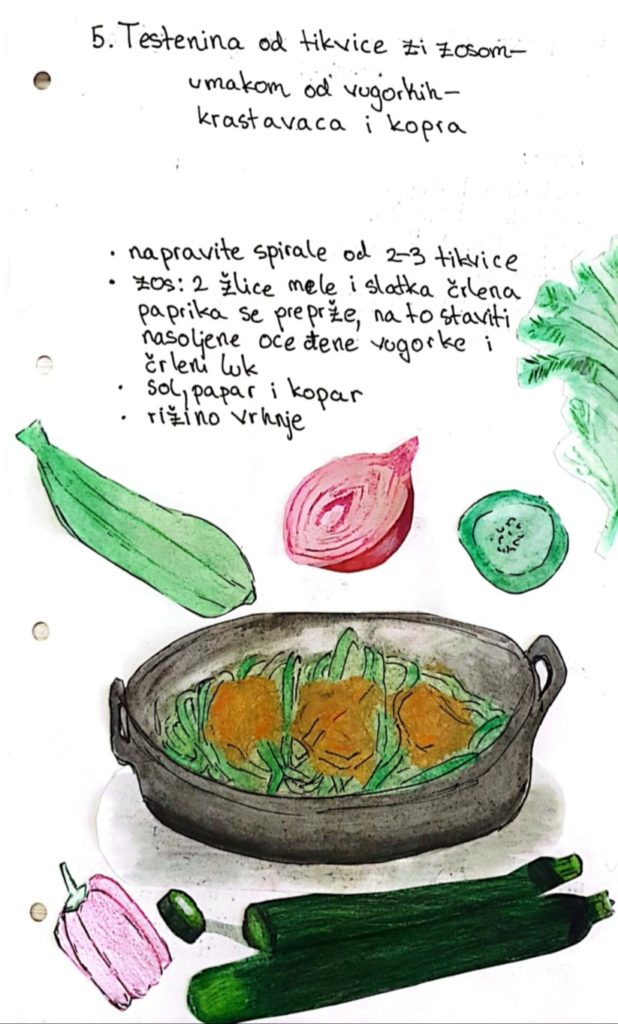 5. Testenina od tikvice zi zosom-
umakom od vugorkih-
krastavaca i kopra
• napravite spirale od 2-3 tikvice
• zos: 2 žlice mele i slatka črlena
paprika se preprže, na to staviti
nasoljene oceđene vugorke i
črleni luk
• sol, papar i kopar
• rižino vrhnje